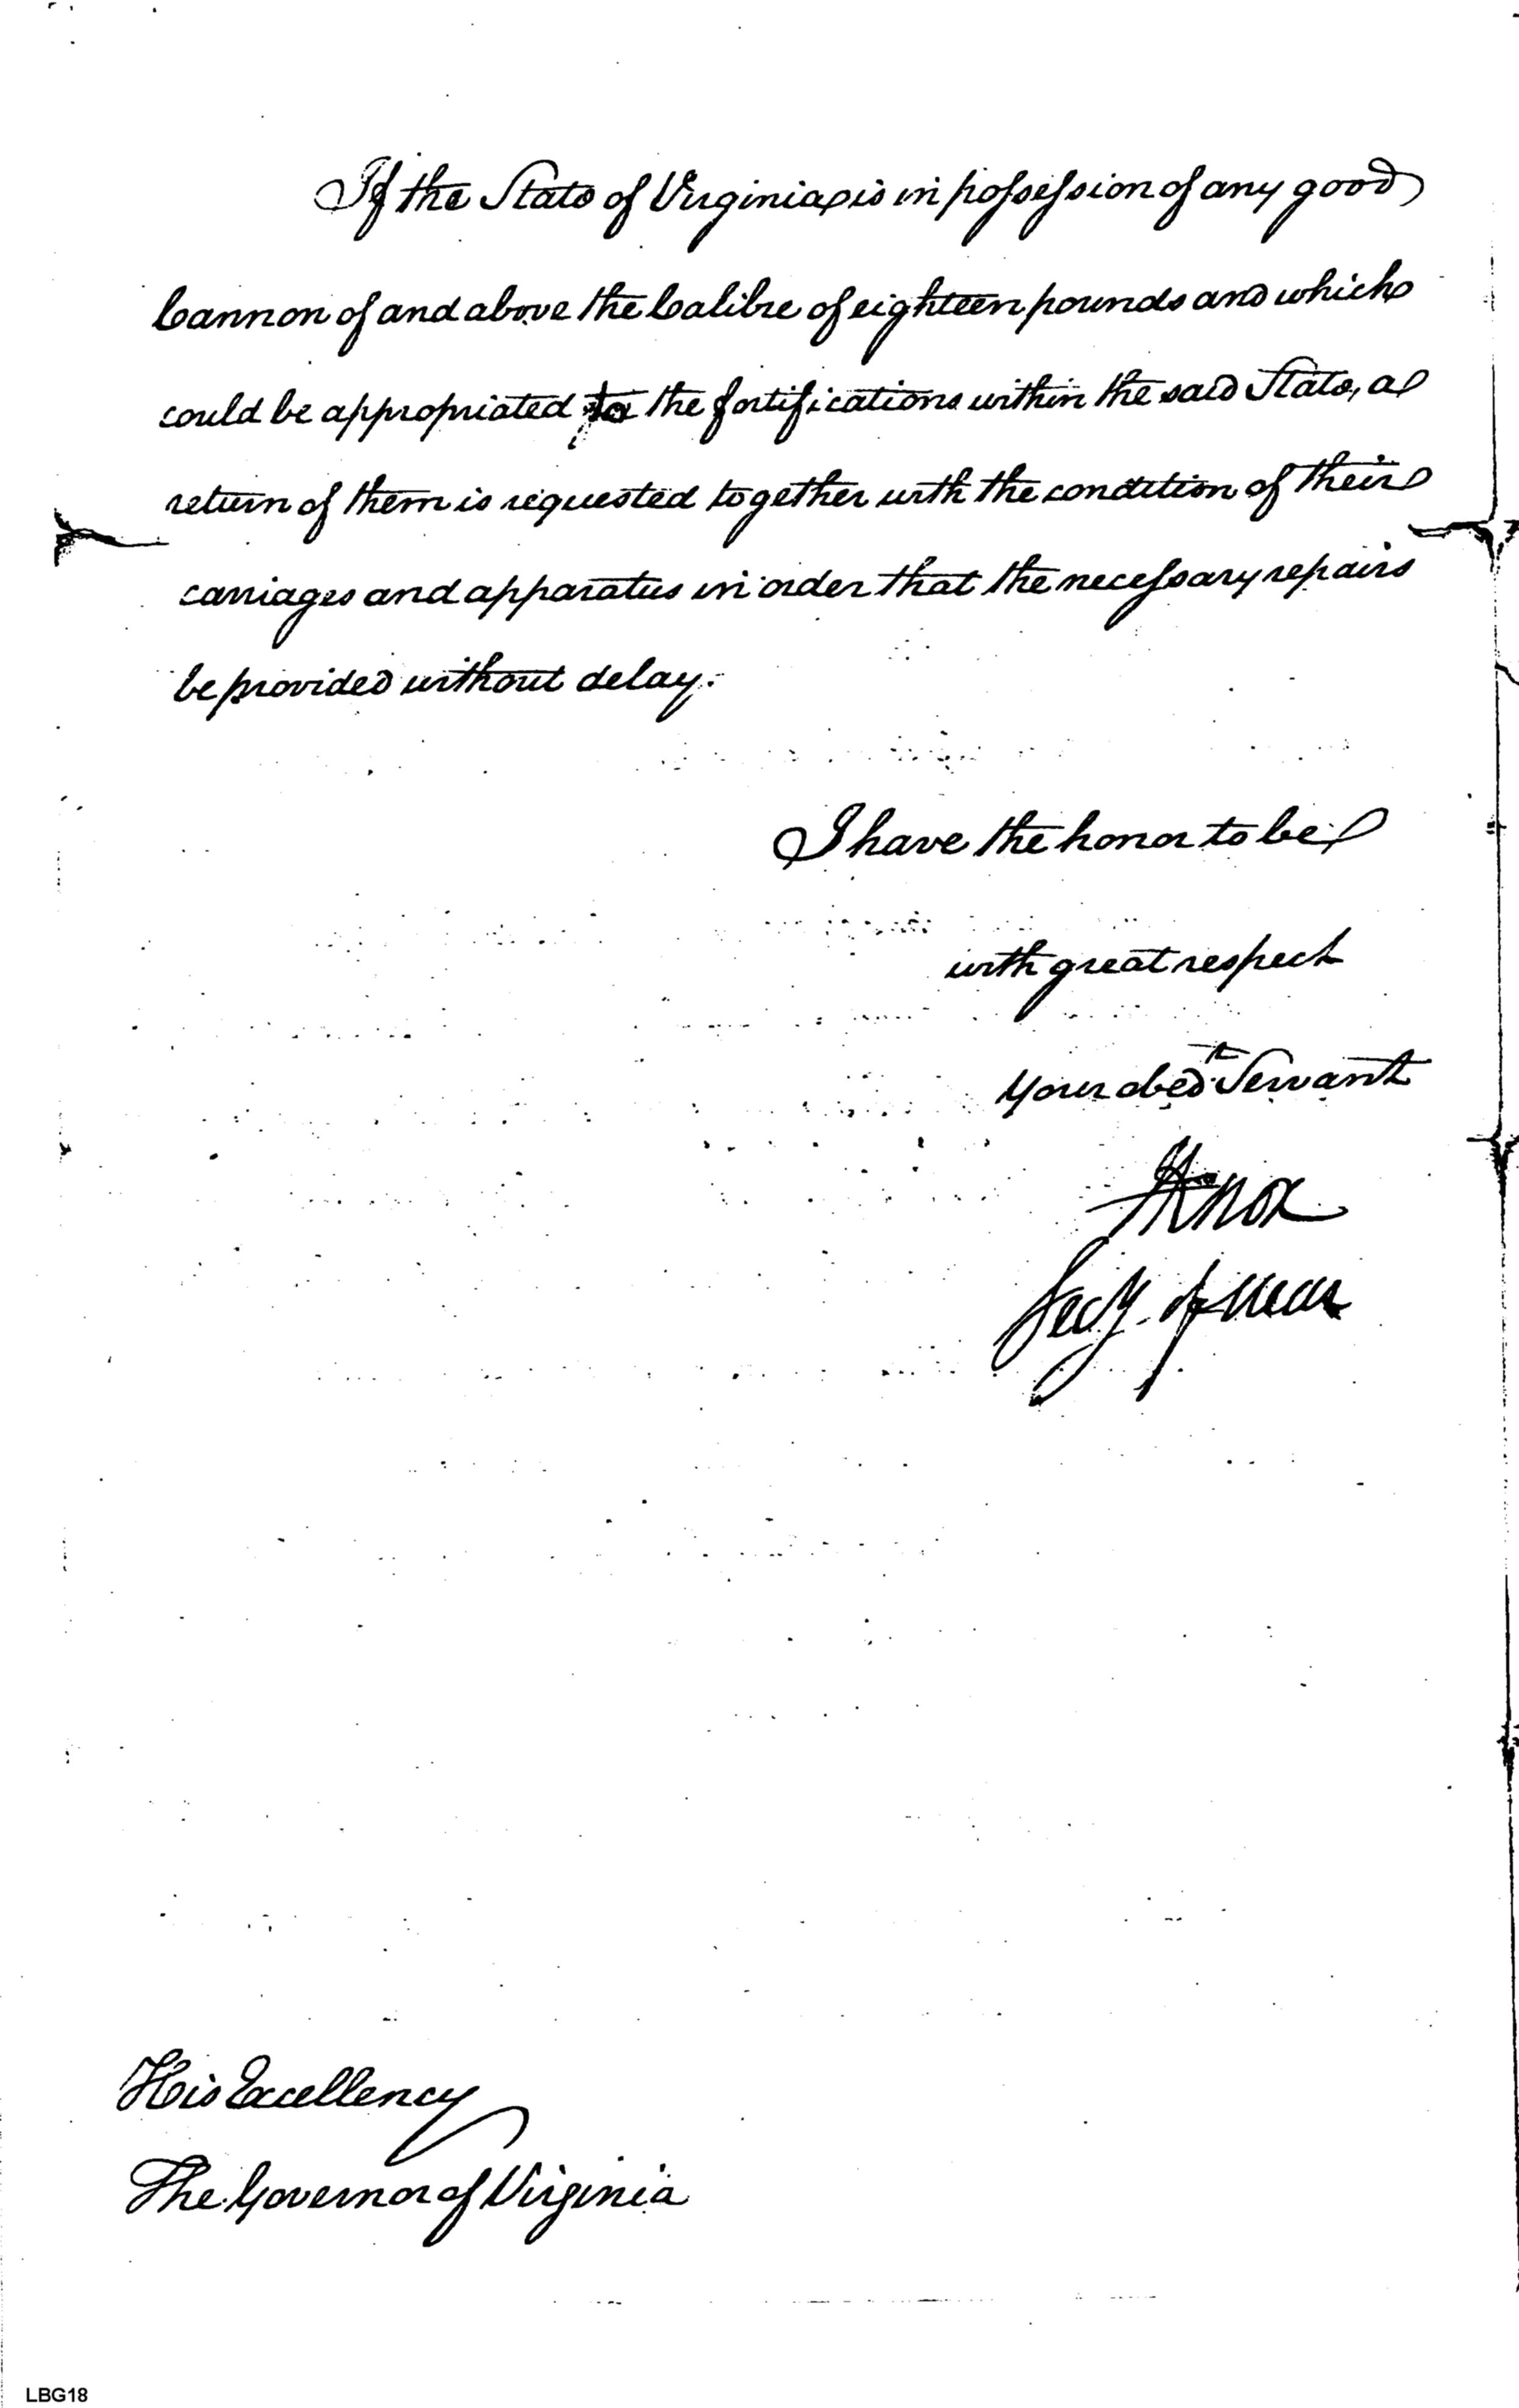 If the State of Virginia is in possession of any good
Cannon of and above the Calibre of eighteen pounds and which
could be appropriated to the fortifications within the said State, a
return of them is requested together with the condition of their
carriages and apparatus in order that the necessary repairs
be provided without delay.
I have the honor to be
with great respect
Your obed.t Servant
HKnox
Secy. of war
His Excellency
The Governor of Virginia
LBG18